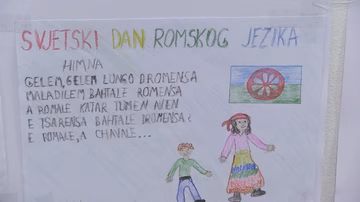 SVJETSKI DAN ROMSKOG JEZIKA
HIMNA
GELEM, GELEM LUNGO DROMENSA
MALADILEM BAHTALE ROMENSA
A ROMALE KATAR TUMEN AVEN
E TSARENSA BAHTALE DROMENSA
E ROMALE, A CHAVALE...